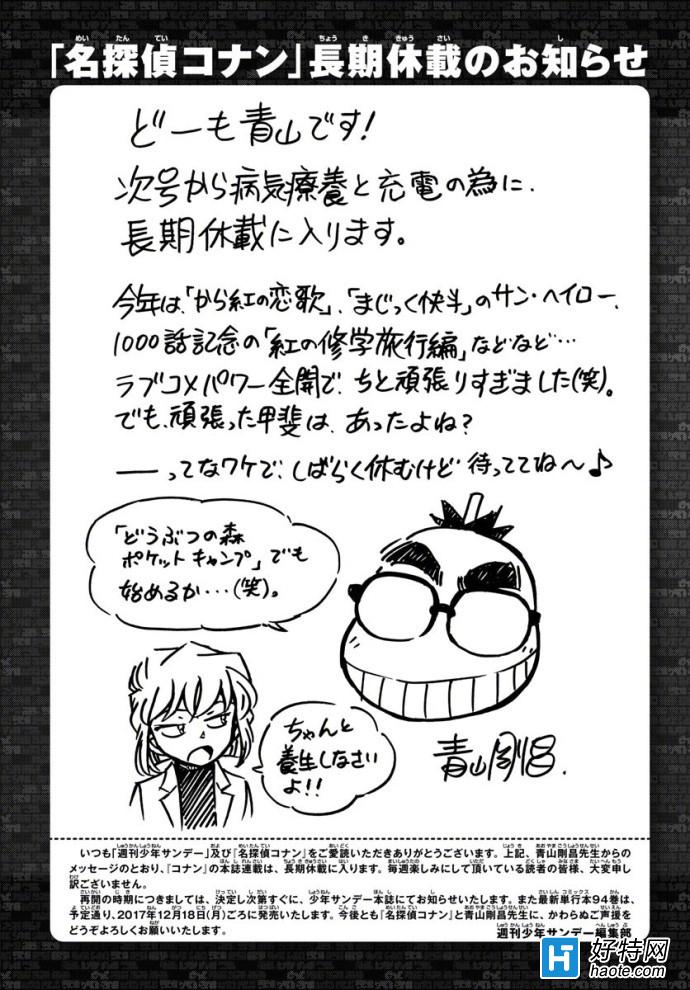 「名探偵コナン」長期休載のお知らせ
どーも青山です!
次号から病気療養と充電の為に、
長期休載に入ります。
今年は、「から紅の恋歌」、「まじっく快斗」のサン・ヘイロー、
1000話記念の「紅の修学旅行編」などなど…
ラブコメパワー全開で、ちと頑張りすぎました(笑)。
でも、頑張った甲斐は、あったよね?
――ってなワケで、しばらく休むけど 待っててね〜♪
「どうぶつの森
ポケットキャンプ」でも
始めるか・・・(笑)。
ちゃんと
養生しなさい
よ!!
青山剛昌.
いつも「週刊少年サンデー」及び『名探偵コナン』をご愛読いただきありがとうございます。上記、青山剛昌先生からの
メッセージのとおり、『コナン』の本誌連載は、長期休載に入ります。毎週楽しみにして頂いている読者の皆様、大変申し
訳ございません。
再開の時期につきましては、決定し次第すぐに、少年サンデー本誌にてお知らせいたします。また最新単行本94巻は、
予定通り、2017年12月18日(月)ごろに発売いたします。今後とも『名探偵コナン』と青山剛昌先生に、かわらぬご声援を
どうぞよろしくお願いいたします。
週刊少年サンデー編集部
H 好特网
haote.com